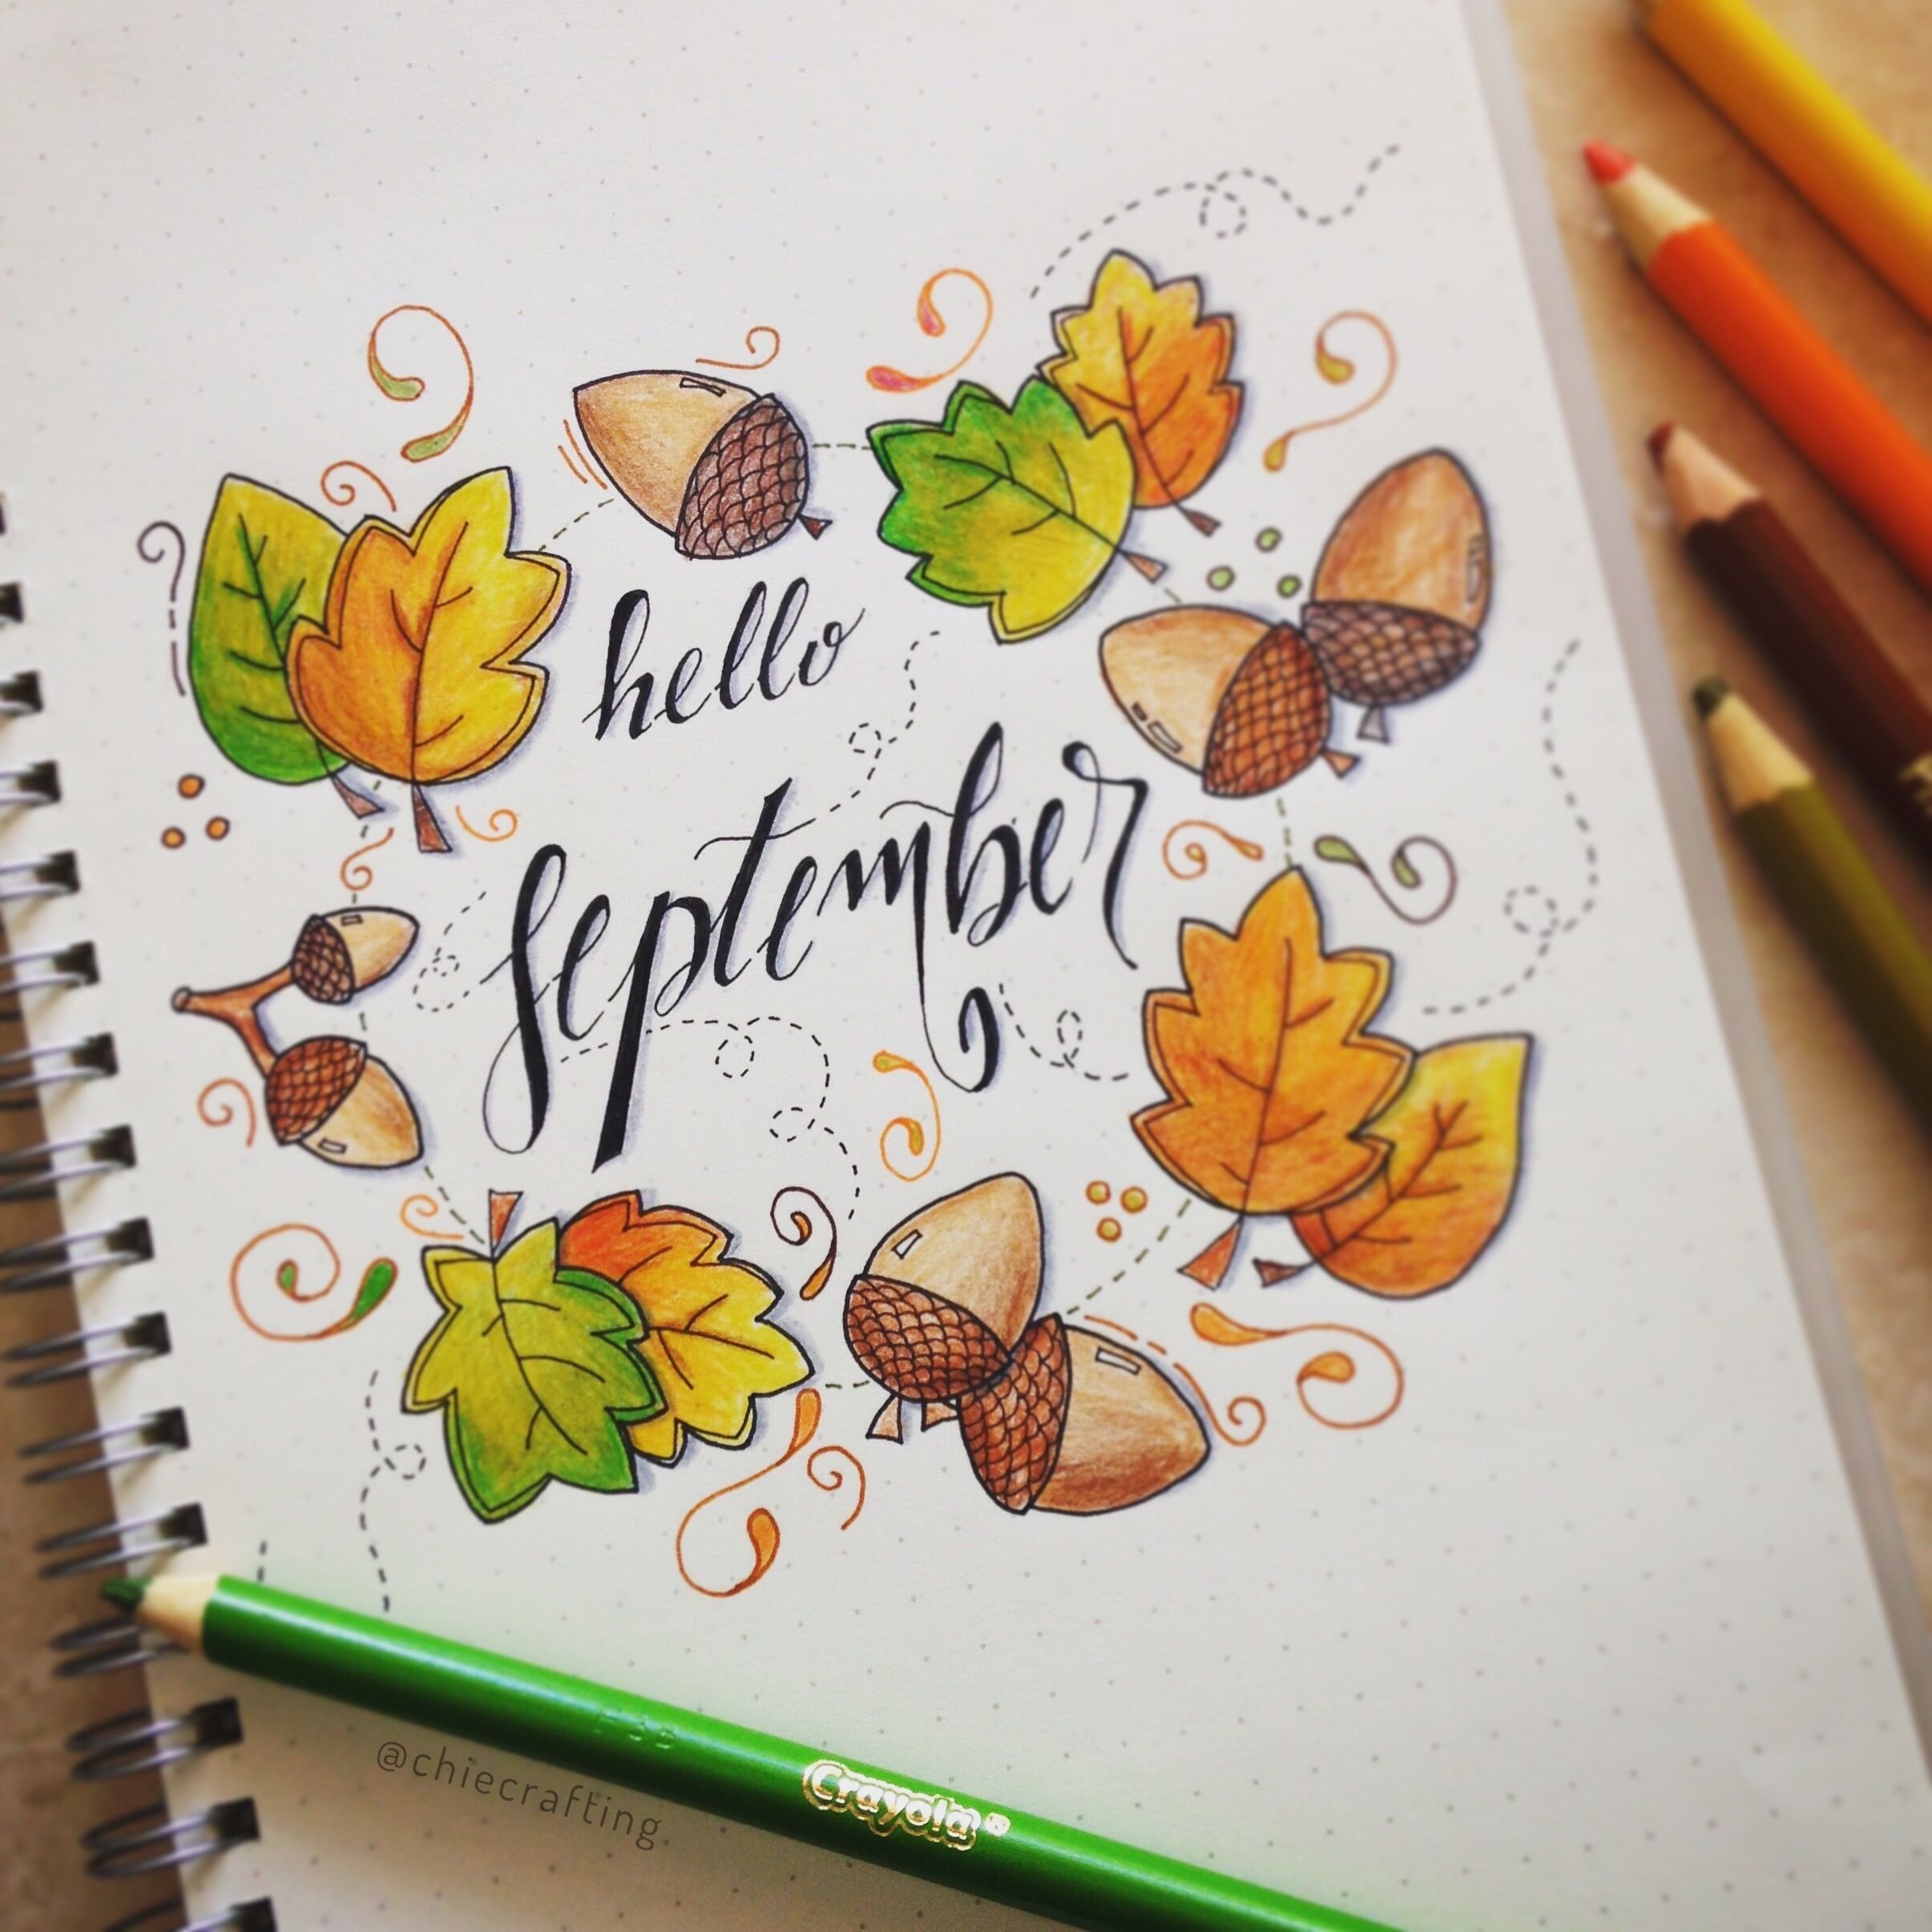 hello
september
Crayola®
@chiecrafting